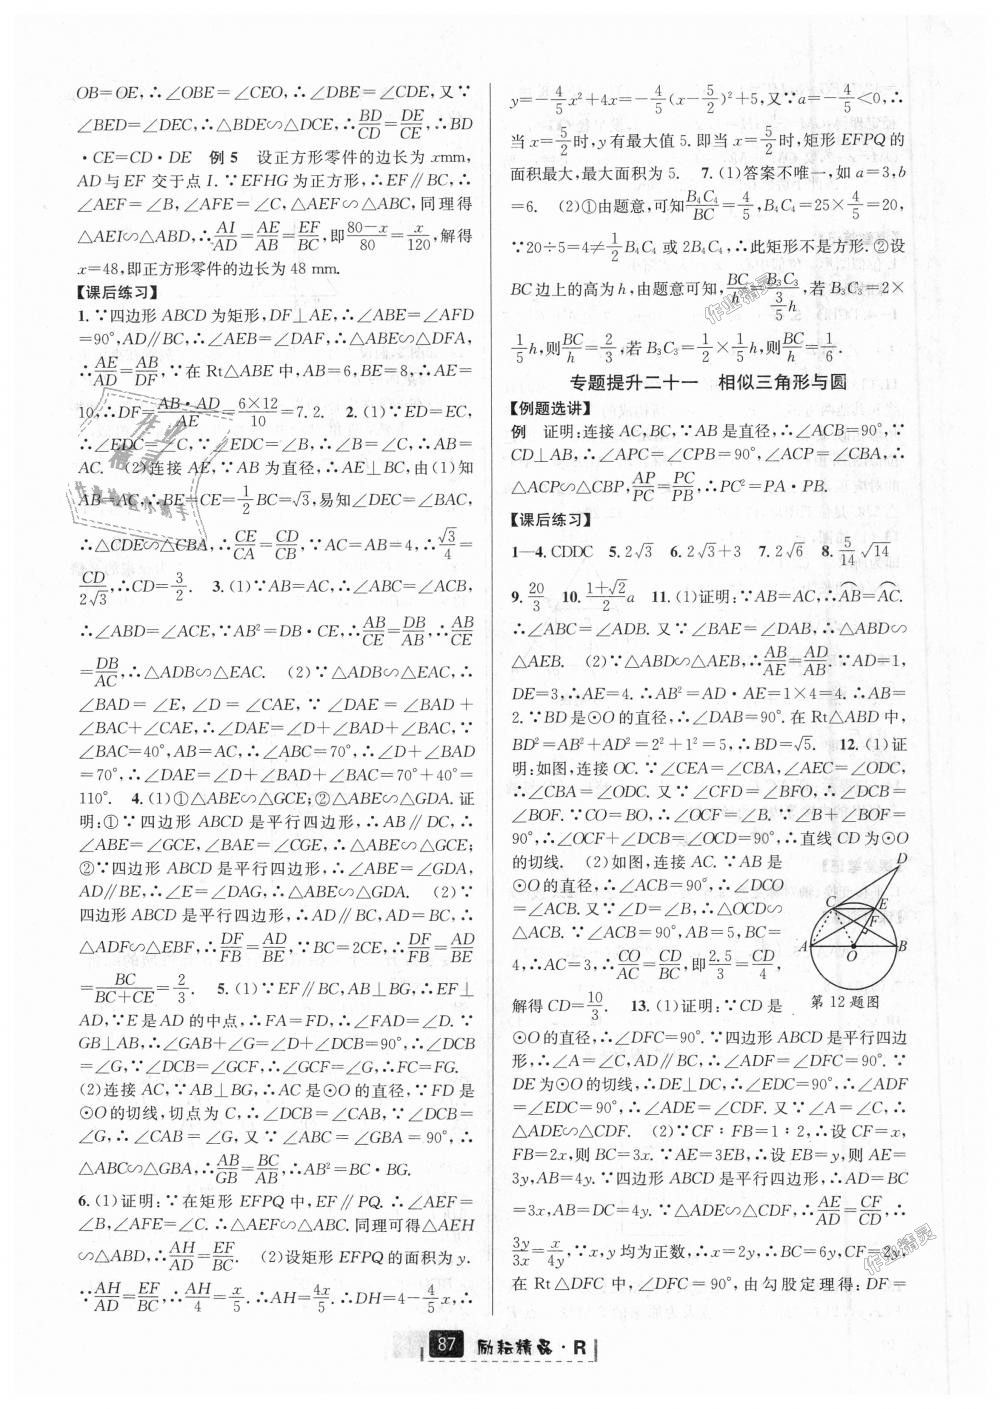 OB=OE,∴∠OBE=∠CEO,∴∠DBE=∠CDE,又∵
∠BED=∠DEC,∴△BDE∽△DCE,∴BD/CD=DE/CE,∴BD
·CE=CD·DE 例5 设正方形零件的边长为 xmm,
AD与EF 交于点 I.∵EFHG为正方形,∴EF∥BC,∴
∠AEF=∠B,∠AFE=∠C,△AEF∽△ABC,同理得
△AEI∽△ABD,∴AI/AD=AE/AB=EF/BC,即(80−x)/80=x/120,解得
x=48,即正方形零件的边长为 48 mm.
【课后练习】
1.∵四边形 ABCD 为矩形,DF⊥AE,∴∠ABE=∠AFD
=90°,AD∥BC,∴∠AEB=∠DAF,∴△ABE∽△DFA,
∴AE/AD=AB/DF,∵在 Rt△ABE 中,AB=6,BE=8,∴AE=
10,∴DF=AB·AD/AE=6×12/10=7.2. 2.(1)∵ED=EC,
∴∠EDC=∠C,∵∠EDC=∠B,∴∠B=∠C,∴AB=
AC. (2)连接 AE,∵AB 为直径,∴AE⊥BC,由(1)知
AB=AC,∴BE=CE=1/2BC=√3,易知∠DEC=∠BAC,
∴△CDE∽△CBA,∴CE/CA=CD/CB,∵AC=AB=4,∴√3/4=
CD/2√3,∴CD=3/2. 3.(1)∵AB=AC,∴∠ABC=∠ACB,
∴∠ABD=∠ACE,∵AB²=DB·CE,∴AB/CE=DB/AB,∴AB/CE
=DB/AC,∴△ADB∽△EAC. (2)∵△ADB∽△EAC,∴
∠BAD=∠E,∠D=∠CAE,∵∠DAE=∠BAD+
∠BAC+∠CAE,∴∠DAE=∠D+∠BAD+∠BAC,∵
∠BAC=40°,AB=AC,∴∠ABC=70°,∴∠D+∠BAD
=70°,∴∠DAE=∠D+∠BAD+∠BAC=70°+40°=
110°. 4.(1)①△ABE∽△GCE;②△ABE∽△GDA.证
明:①∵四边形 ABCD 是平行四边形,∴AB∥DC,∴
∠ABE=∠GCE,∠BAE=∠CGE,∴△ABE∽△GCE;
②∵四边形 ABCD 是平行四边形,∴∠ABE=∠GDA,
AD∥BE,∴∠E=∠DAG,∴△ABE∽△GDA. (2)∵
四边形 ABCD 是平行四边形,∴AD∥BC,AD=BC,∴
△ADF∽△EBF,∴DF/FB=AD/BE,∵BC=2CE,∴DF/FB=AD/BE
=BC/(BC+CE)=2/3. 5.(1)∵EF∥BC,AB⊥BG,∴EF⊥
AD,∵E 是 AD 的中点,∴FA=FD,∴∠FAD=∠D.∵
GB⊥AB,∴∠GAB+∠G=∠D+∠DCB=90°,∴∠DCB
=∠G,∵∠DCB=∠GCF,∴∠GCF=∠G,∴FC=FG.
(2)连接 AC,∵AB⊥BG,∴AC 是⊙O 的直径,∵FD 是
⊙O 的切线,切点为 C,∴∠DCB=∠CAB,∵∠DCB=
∠G,∴∠CAB=∠G,又∵∠ABC=∠GBA=90°,∴
△ABC∽△GBA,∴AB/GB=BC/AB,∴AB²=BC·BG.
6.(1)证明:∵在矩形 EFPQ 中,EF∥PQ.∴∠AEF=
∠B,∠AFE=∠C.∴△AEF∽△ABC.同理可得△AEH
∽△ABD,∴AH/AD=EF/BC. (2)设矩形 EFPQ 的面积为 y.
∵AH/AD=EF/BC,∴AH/4=x/5.∴AH=4x/5.∴DH=4−4/5x,∴
y=−4/5x²+4x=−4/5(x−5/2)²+5,又∵a=−4/5<0,∴
当 x=5/2时,y 有最大值 5.即当 x=5/2时,矩形 EFPQ 的
面积最大,最大面积为 5. 7.(1)答案不唯一,如 a=3,b
=6. (2)①由题意,可知B₄C₄/BC=4/5,B₄C₄=25×4/5=20,
∵20÷5=4≠1/2B₄C₄ 或 2B₄C₄,∴此矩形不是方形.②设
BC 边上的高为 h,由题意可知,BC/h=B₃C₃/(3/5h),若 B₃C₃=2×
1/5h,则BC/h=2/3,若 B₃C₃=1/2×1/5h,则BC/h=1/6.
专题提升二十一 相似三角形与圆
【例题选讲】
例 证明:连接 AC,BC,∵AB 是直径,∴∠ACB=90°,∵
CD⊥AB,∴∠APC=∠CPB=90°,∠ACP=∠CBA,∴
△ACP∽△CBP,AP/PC=PC/PB,∴PC²=PA·PB.
【课后练习】
1—4.CDDC 5.2√3 6.2√3+3 7.2√6 8.5/14√14
9.20/3 10.(1+√2)/2a 11.(1)证明:∵AB=AC,∴A͡B=A͡C.
∴∠ABC=∠ADB.又∵∠BAE=∠DAB,∴△ABD∽
△AEB. (2)∵△ABD∽△AEB,∴AB/AE=AD/AB.∵AD=1,
DE=3,∴AE=4.∴AB²=AD·AE=1×4=4.∴AB=
2.∵BD 是⊙O 的直径,∴∠DAB=90°.在 Rt△ABD 中,
BD²=AB²+AD²=2²+1²=5,∴BD=√5. 12.(1)证
明:如图,连接 OC.∵∠CEA=∠CBA,∠AEC=∠ODC,
∴∠CBA=∠ODC.又∵∠CFD=∠BFO,∴∠DCB=
∠BOF.∵CO=BO,∴∠OCF=∠B.∵∠B+∠BOF=
90°,∴∠OCF+∠DCB=∠OCD=90°,∴直线 CD 为⊙O
的切线. (2)如图,连接 AC.∵AB 是
⊙O 的直径,∴∠ACB=90°,∴∠DCO
=∠ACB.又∵∠D=∠B,∴△OCD∽
△ACB.∵∠ACB=90°,AB=5,BC=
4,∴AC=3,∴CO/AC=CD/BC,即2.5/3=CD/4,
解得 CD=10/3. 13.(1)证明:∵CD 是
D
C
E
F
A
O
B
第 12 题图
⊙O 的直径,∴∠DFC=90°.∵四边形 ABCD 是平行四边
形,∴∠A=∠C,AD∥BC,∴∠ADF=∠DFC=90°.∵
DE 为⊙O 的切线,∴DE⊥DC,∴∠EDC=90°,∴∠ADF
=∠EDC=90°,∴∠ADE=∠CDF.又∵∠A=∠C,∴
△ADE∽△CDF. (2)∵CF∶FB=1∶2,∴设 CF=x,
FB=2x,则 BC=3x.∵AE=3EB,∴设 EB=y,则 AE=
3y,AB=4y.∵四边形 ABCD 是平行四边形,∴AD=BC
=3x,AB=DC=4y.∵△ADE∽△CDF,∴AE/AD=CF/CD,∴
3y/3x=x/4y,∵x,y 均为正数,∴x=2y,∴BC=6y,CF=2y,
在 Rt△DFC 中,∠DFC=90°,由勾股定理得:DF=
87 励耘精品·R
作业精灵
作业精灵
作业
精灵
作业检查小助手